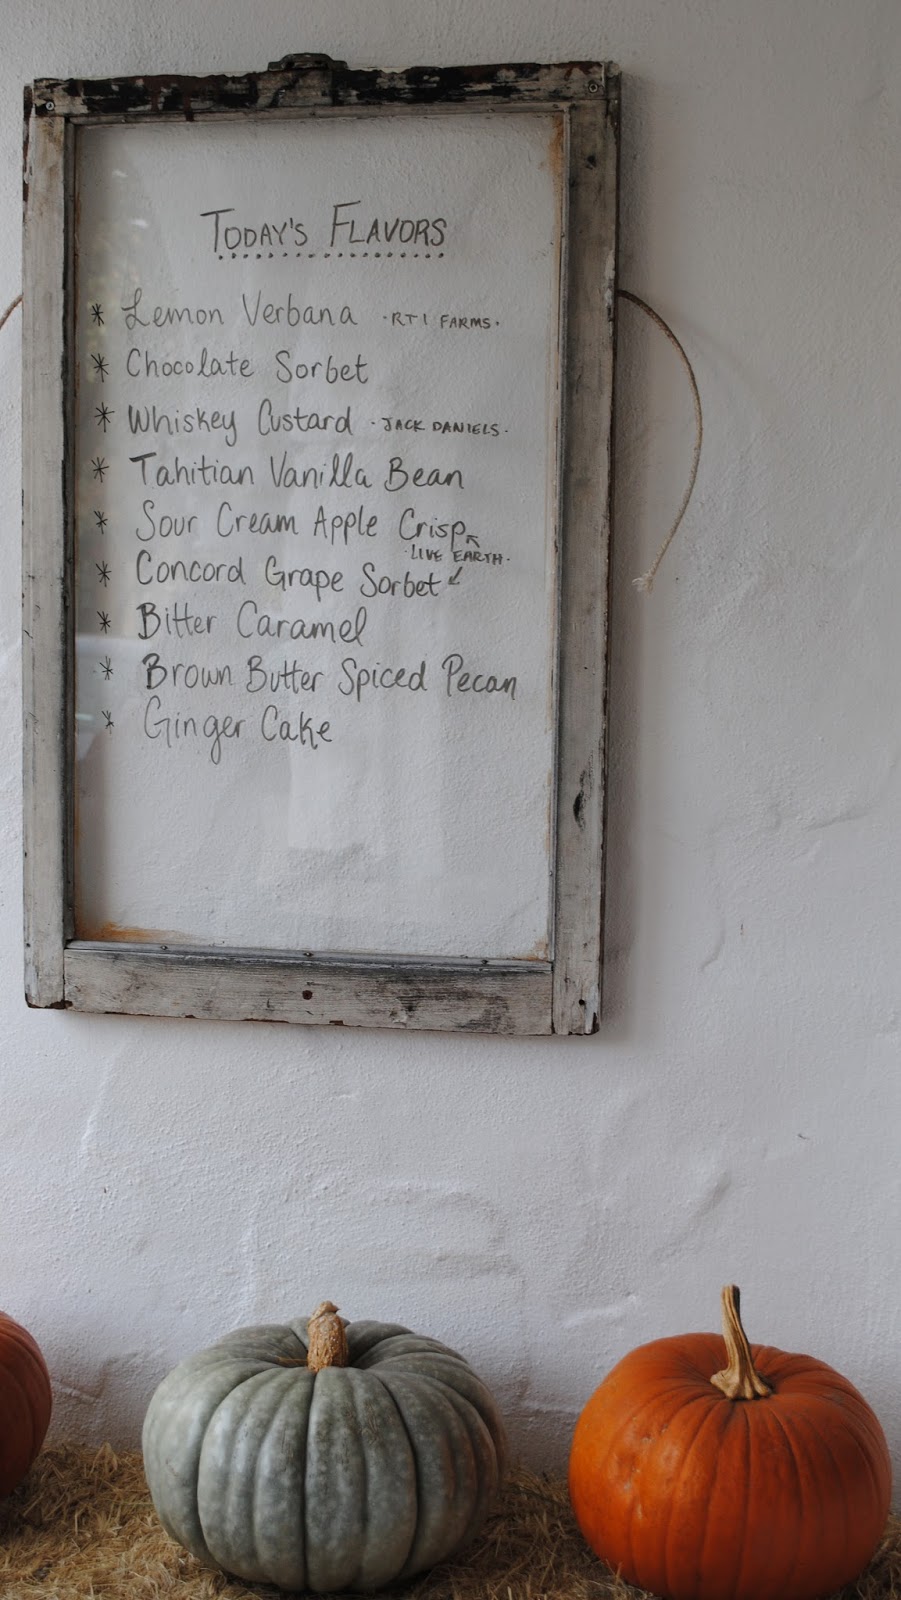 TODAY'S FLAVORS
* Lemon Verbana · RTI FARMS ·
* Chocolate Sorbet
* Whiskey Custard · JACK DANIELS ·
* Tahitian Vanilla Bean
* Sour Cream Apple Crisp
· LIVE EARTH ·
* Concord Grape Sorbet
* Bitter Caramel
* Brown Butter Spiced Pecan
* Ginger Cake